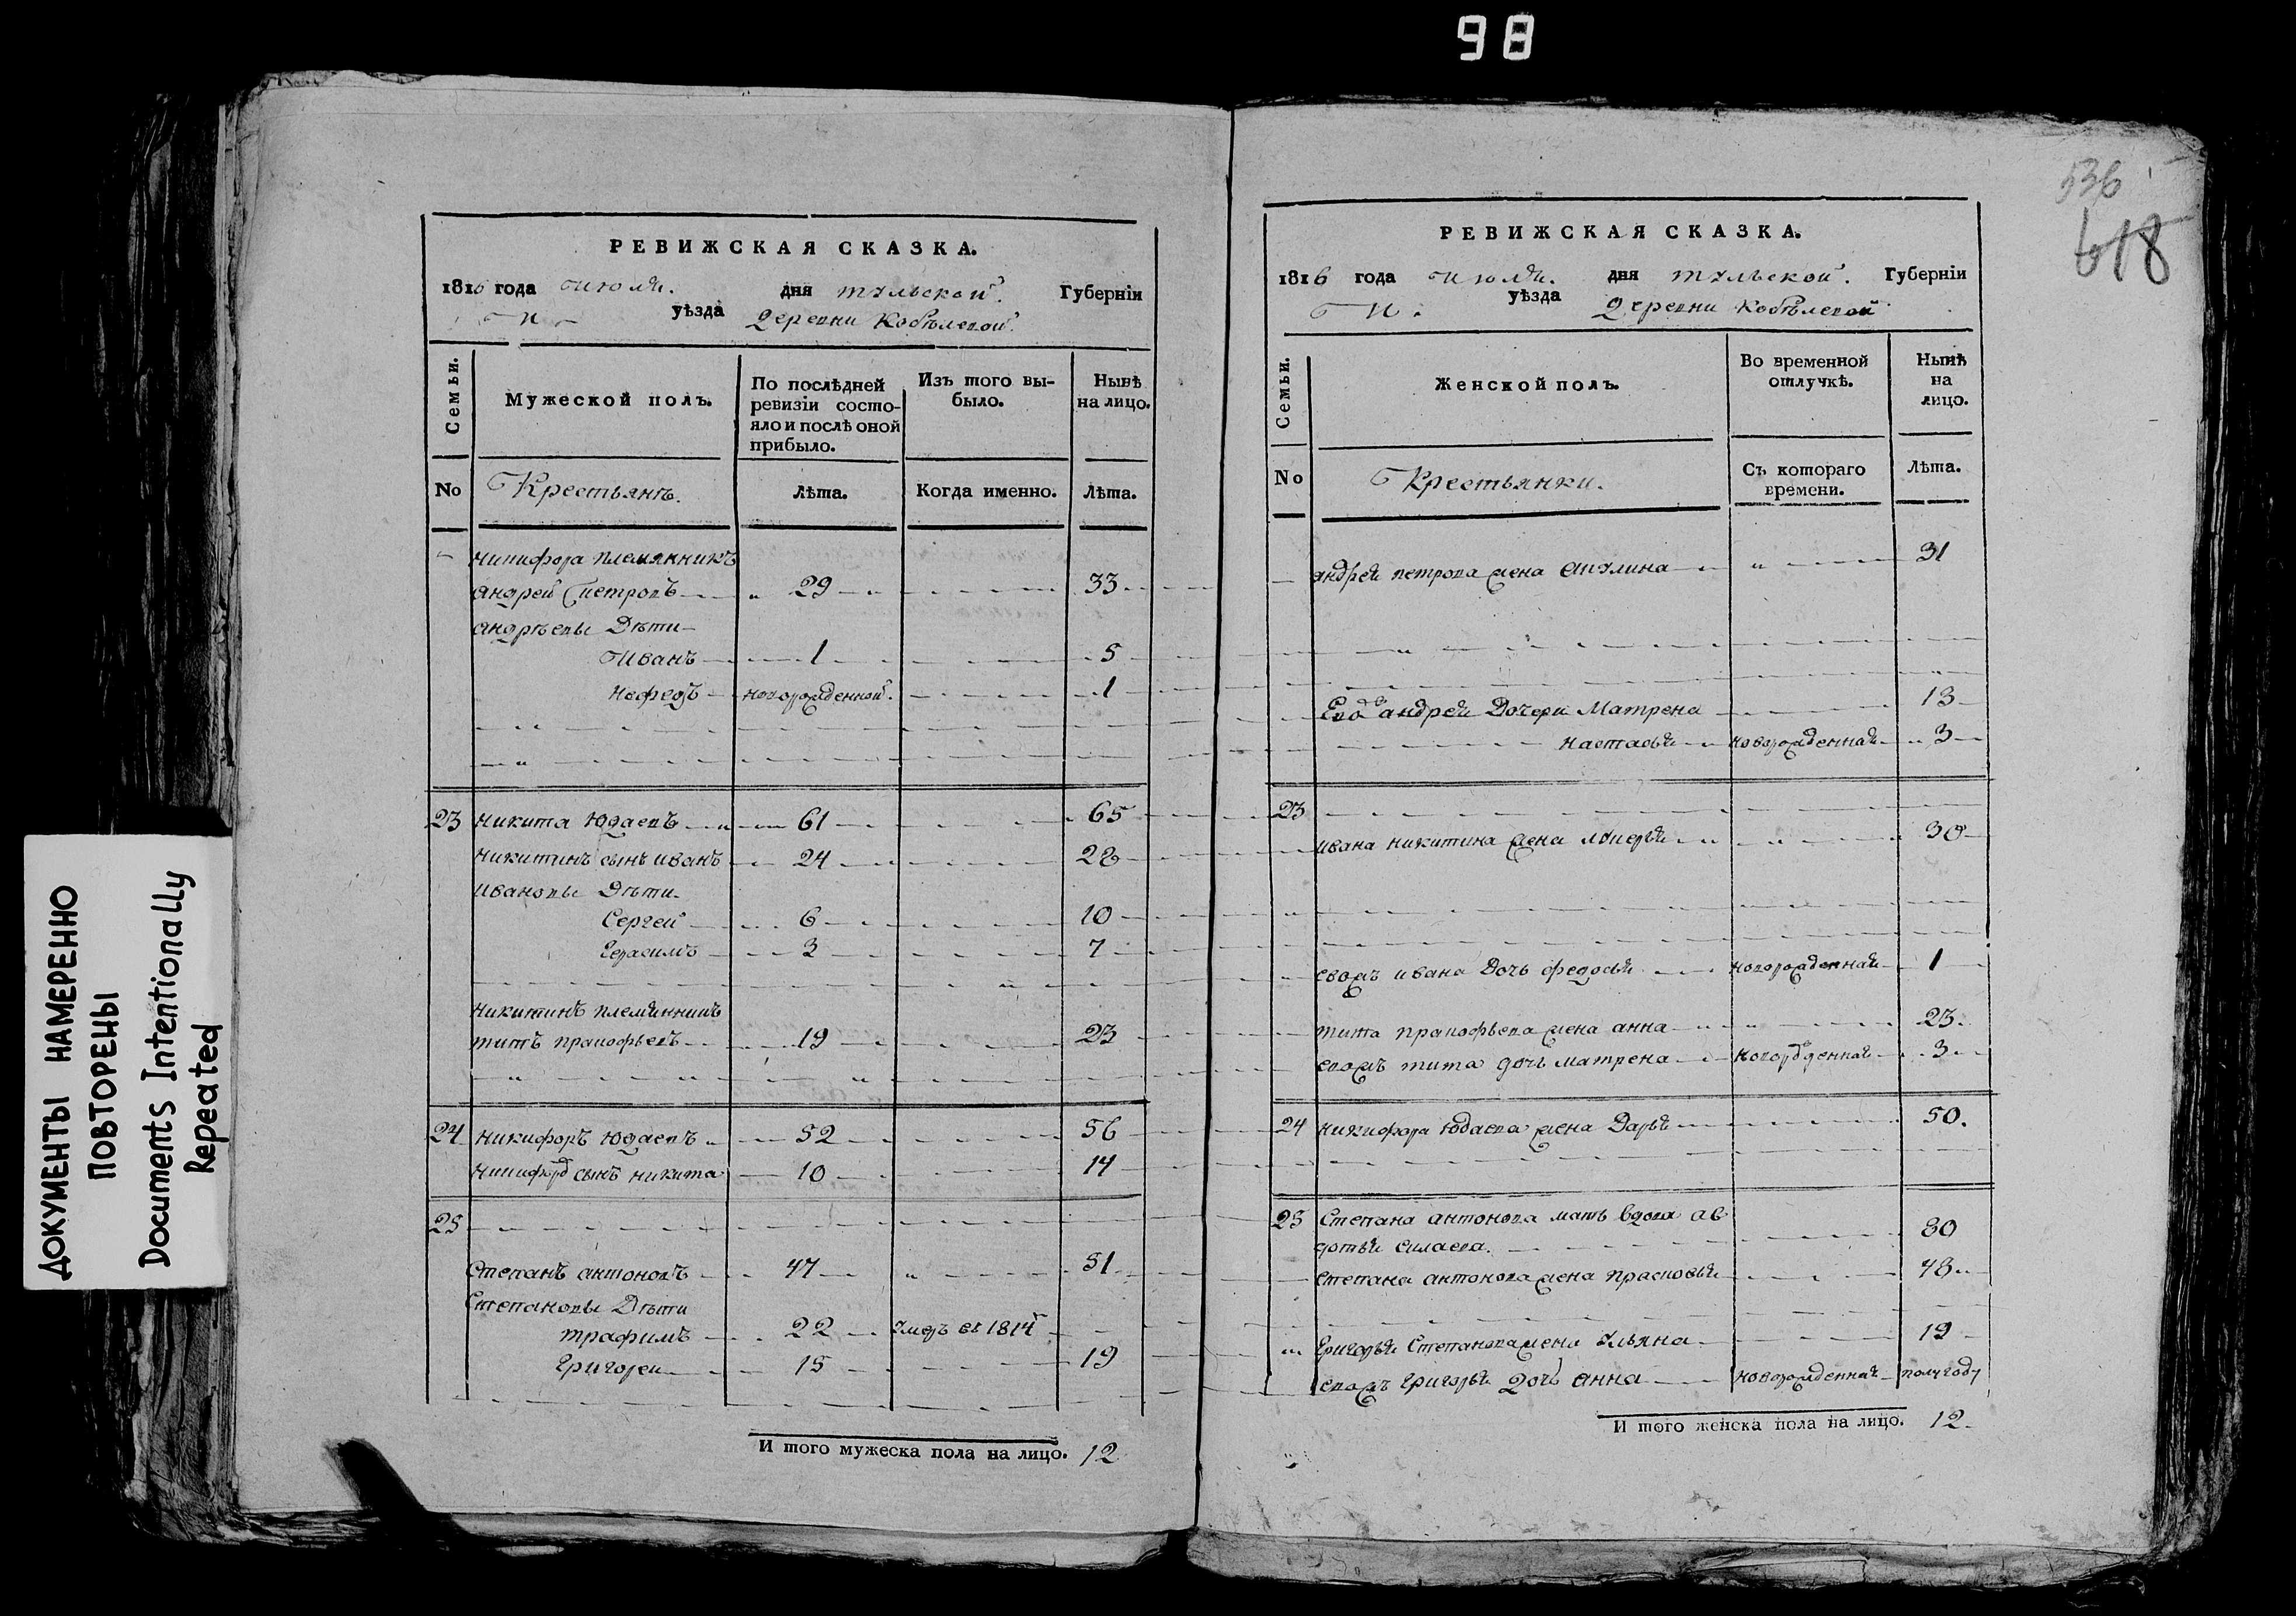 98
536
618
ДОКУМЕНТЫ НАМЕРЕННО
ПОВТОРЕНЫ
Documents Intentionally
Repeated
РЕВИЖСКАЯ СКАЗКА.
1816 года Июля. дня тульской. Губернїи
уѣзда Деревни Кобылевой.
Семьи. Мужеской полъ. По послѣдней ревизїи состояло и послѣ оной прибыло. Изъ того выбыло. Нынѣ на лицо.
No Крестьянъ. Лѣта. Когда именно. Лѣта.
никифора племянникъ
андрей петровъ 29 33
андрѣевы Дѣти
Иванъ 1 5
нефедъ новорожденной. 1
23 никита Юдаевъ 61 65
никитинъ сынъ иванъ 24 28
ивановы Дѣти
Сергей 6 10
Герасимъ 3 7
никитинъ племянникъ
титъ пракофьевъ 19 23
24 никифоръ Юдаевъ 52 56
никифоръ сынъ никита 10 14
25
Степанъ антоновъ 47 51
Степановы Дѣти
трафимъ 22 умеръ въ 1814
Григореи 15 19
И того мужеска пола на лицо. 12
РЕВИЖСКАЯ СКАЗКА.
1816 года июля. дня тульской. Губернїи
уѣзда Деревни Кобылевой
Семьи. Женской полъ. Во временной отлучкѣ. Нынѣ на лицо.
No Крестьянки. Съ котораго времени. Лѣта.
андрея петрова жена акулина 31
андрея Дочери Матрена 13
настасья новорожденная 3
23
ивана никитина жена 30
ивана Дочь федосья новорожденная 1
тита пракофьева жена анна 23
тита дочь матрена 3
24 никифора Юдаева жена Дарья 50.
25 Степана антонова мать вдова ав
дотья силаева. 80
степана антонова жена прасковья 48
Григорья Степанова жена ульяна 19
Григорья Дочь анна новорожденная полугоду
И того женска пола на лицо. 12